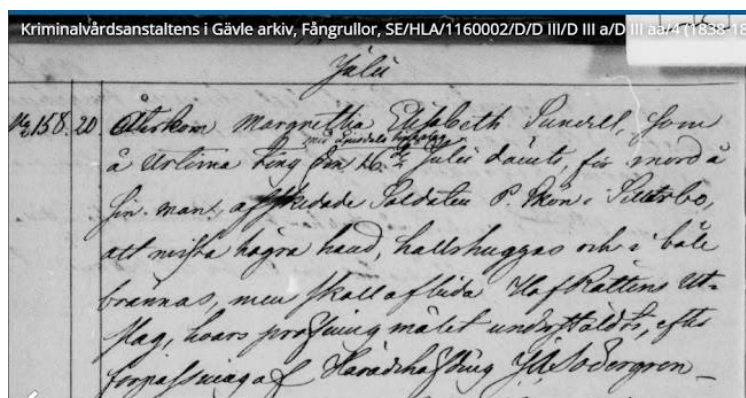 Kriminalvårdsanstaltens i Gävle arkiv, Fångrullor, SE/HLA/1160002/D/D III/D III a/D III aa/4 (1838-18
Julii
No 158. 20. Återkom Margretha Elisabeth Sundell, som
med åtskilliga
å Urtima Ting den 16de Julii dömts, för mord å
sin man, afskedade Soldaten P. Skön i
att mista högra hand, halshuggas och i båle
brännas, men skall afbida HofRättens Ut-
slag, hvars pröfning målet underställdts, efter
förpassning af Häradshöfding Södergren